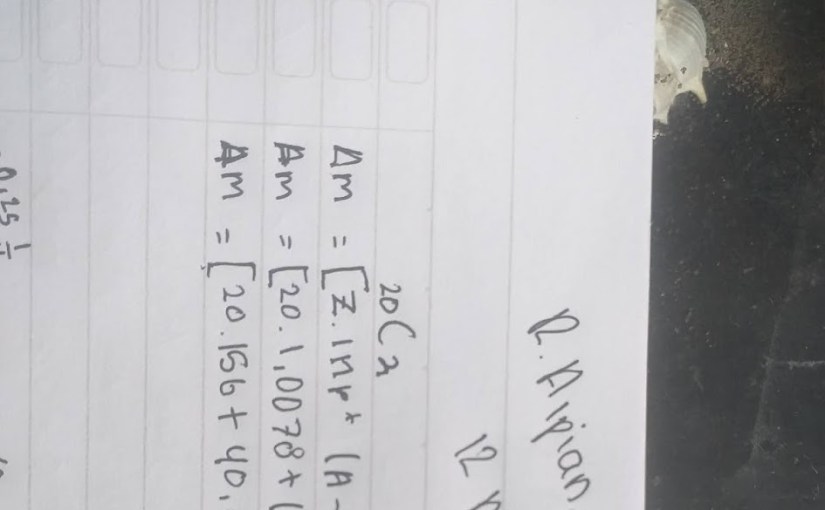 R. Alpian
12
20Ca
Δm = [Z.mp + (A-
Δm = [20.1,0078 + (
Δm = [20.156 + 40.
0,25